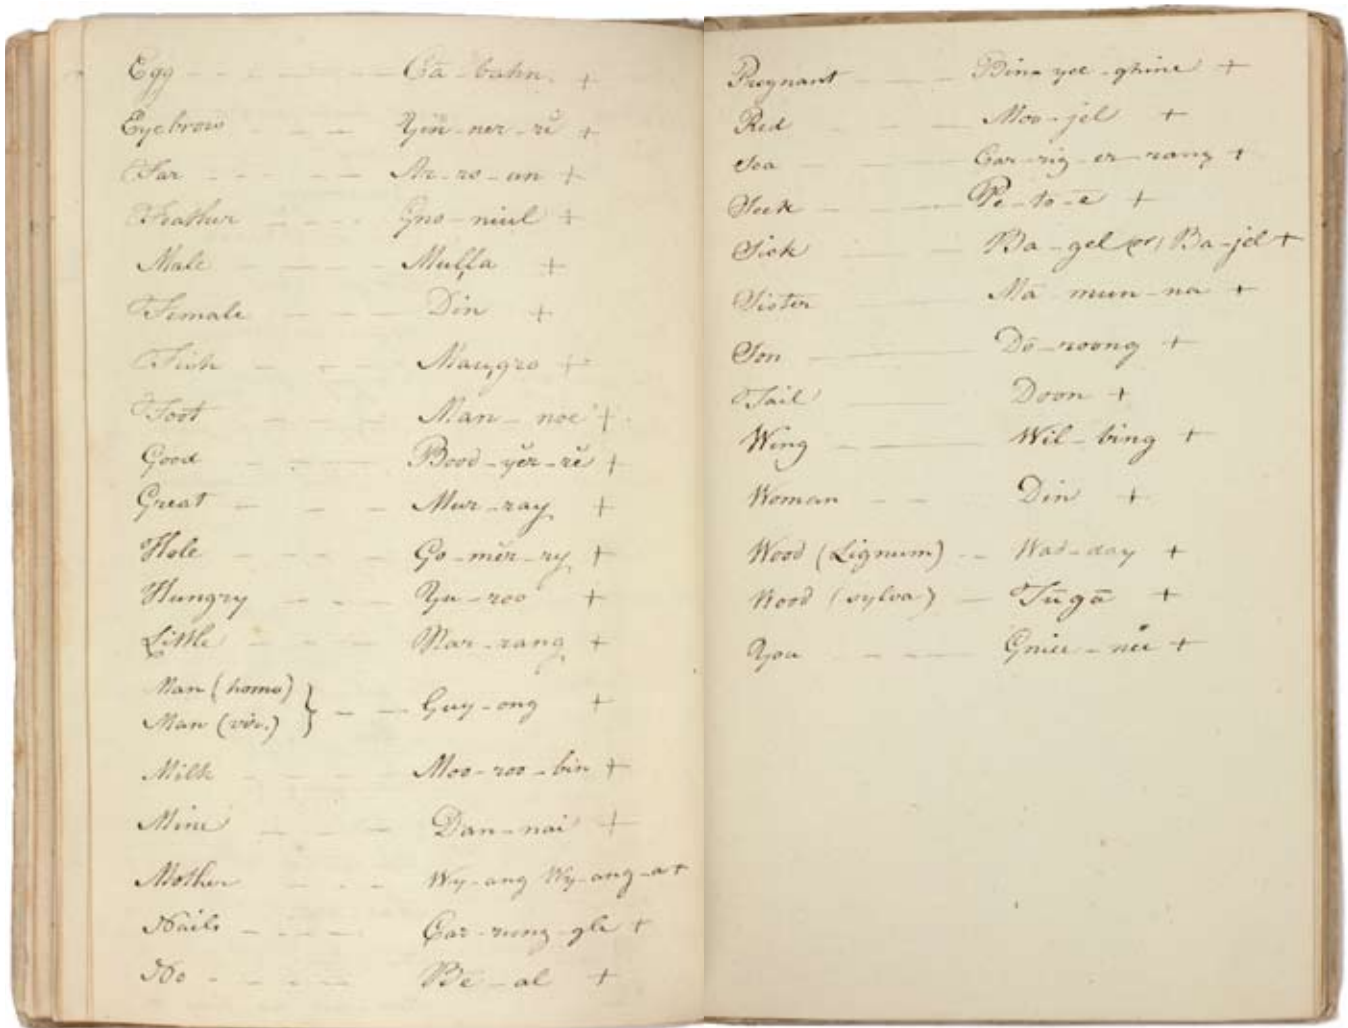 Egg - - - - - Cā-bahn. +
Eyebrow - - - Yin-ner-rĕ +
Far - - - - Ar-ro-un +
Feather - - - Gno-niul +
Male - - - Mulla +
Female - - - Din +
Fish - - - Maugro +
Foot - - - Man-noe +
Good - - - Bood-yĕr-rĕ +
Great - - - Mur-ray +
Hole - - - Go-mĕr-ry +
Hungry - - - Yu-roo +
Little - - - Nar-rang +
Man (homo)
Man (vir.) } - - - Guy-ong +
Milk - - - Moo-roo-bin +
Mine - - - Dan-nai +
Mother - - - Wy-ang Wy-ang-a +
Nails - - - Car-rung-gle +
No - - - - Be-al +
Pregnant - - - Bin-yee-ghine +
Red - - - Moo-jel +
Sea - - - Gar-rig-er-rang +
Seek - - - Pe-to-ē +
Sick - - - Ba-gel (or) Ba-jel +
Sister - - - Mā-mun-na +
Son - - - Dō-roong +
Tail - - - Doon +
Wing - - - Wil-bing +
Woman - - - Din +
Wood (Lignum) - - Wad-day +
Wood (sylva) - Tūgā +
You - - - Gniee-nee +